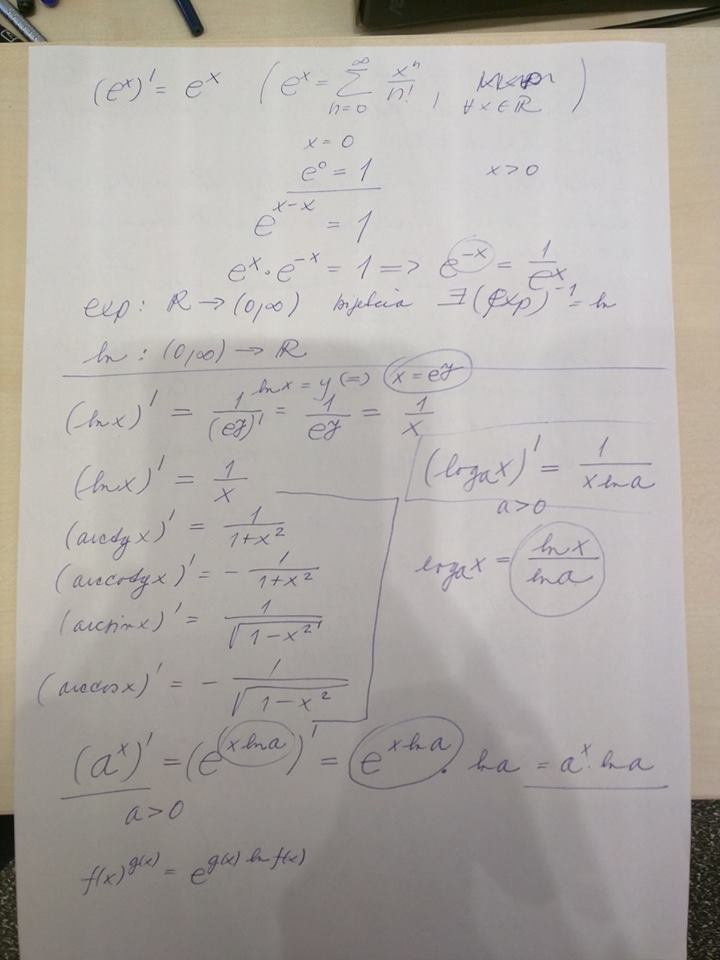 (eˣ)' = eˣ ( eˣ = ∑_{n=0}^{∞} xⁿ/n! , ∀x∈ℝ )
x = 0
e⁰ = 1 x > 0
e^{x-x} = 1
eˣ · e⁻ˣ = 1 => e⁻ˣ = 1/eˣ
exp : ℝ → (0,∞) bijekcia ∃(exp)⁻¹ = ln
ln : (0,∞) → ℝ
ln x = y (=) x = e^y
(ln x)' = 1/(e^y)' = 1/e^y = 1/x
(ln x)' = 1/x (log_a x)' = 1/(x ln a)
a > 0
(arctg x)' = 1/(1+x²)
(arccotg x)' = - 1/(1+x²) log_a x = ln x/ln a
(arcsin x)' = 1/√(1-x²)
(arccos x)' = - 1/√(1-x²)
(aˣ)' = (e^{x ln a})' = e^{x ln a} · ln a = aˣ · ln a
a > 0
f(x)^{g(x)} = e^{g(x) ln f(x)}